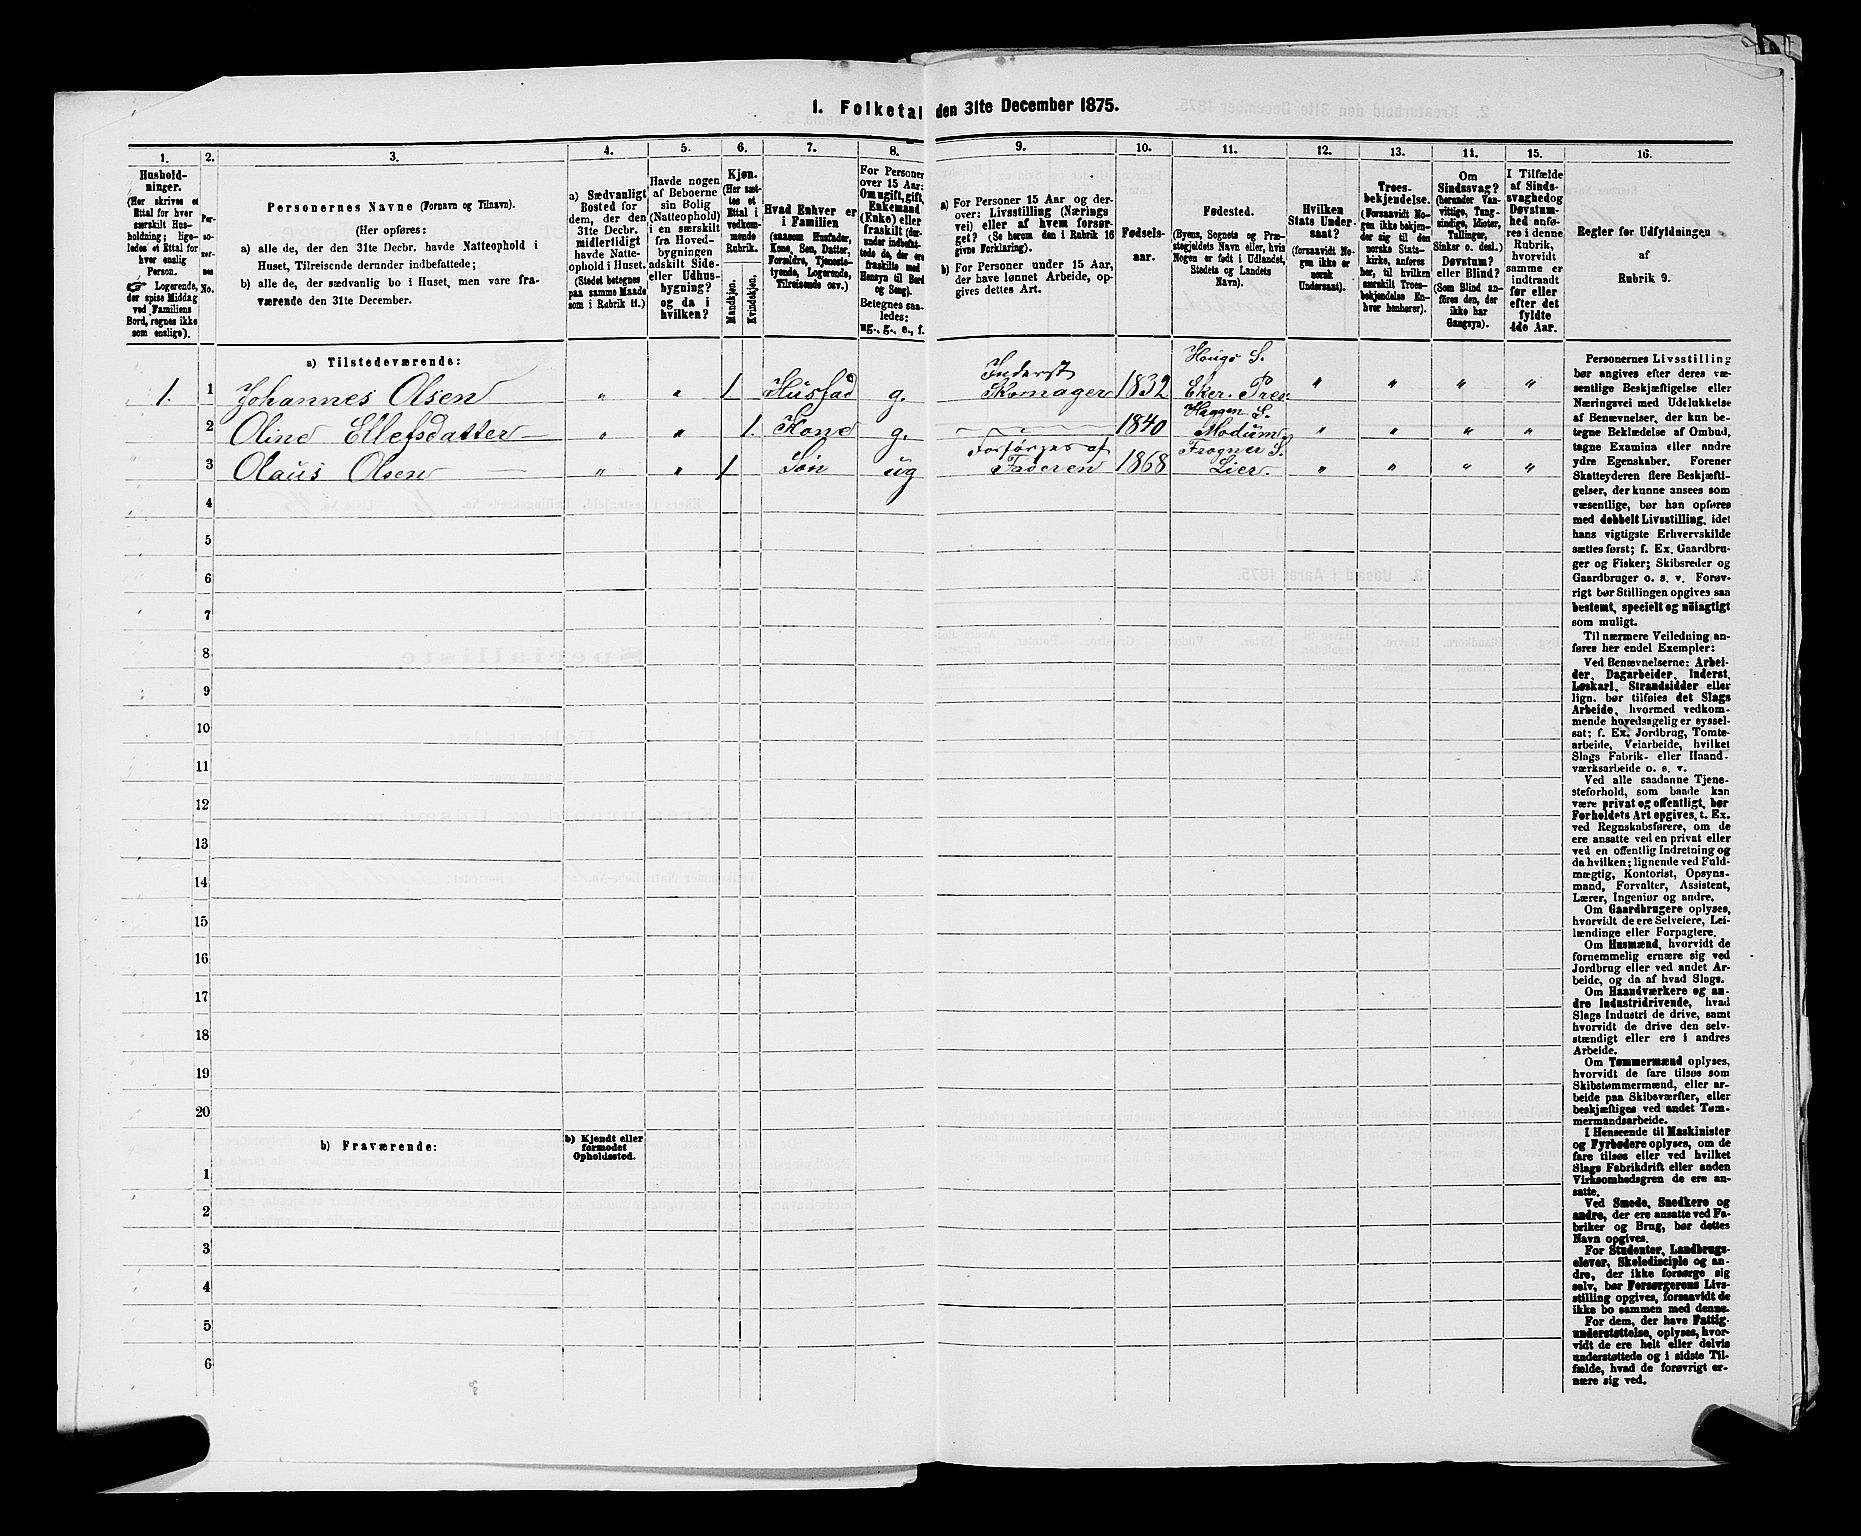 1. Folketal den 31te December 1875.
1.
2.
3.
4.
5.
6.
7.
8.
9.
10.
11.
12.
13.
14.
15.
16.
Hushold-
ninger.
(Her skrives et
Ettal for hver
særskilt Hus-
holdning; lige-
ledes et Ettal for
hver enslig
Person.
☞ Logerende,
der spise Middag
ved Familiens
Bord, regnes ikke
som enslige).
Per-
so-
ner-
nes
No.
Personernes Navne (Fornavn og Tilnavn).
(Her opføres:
a) alle de, der den 31te Decbr. havde Natteophold i
Huset, Tilreisende derunder indbefattede;
b) alle de, der sædvanlig bo i Huset, men vare fra-
værende den 31te December.
a) Sædvanligt
Bosted for
dem, der den
31te Decbr.
midlertidigt
havde Natte-
ophold i Huset.
(Stedet betegnes
paa samme Maade
som i Rubrik 11.)
Havde nogen
af Beboerne
sin Bolig
(Natteophold)
i en særskilt
fra Hoved-
bygningen
adskilt Side-
eller Udhus-
bygning?
og da i
hvilken?
Kjøn.
(Her sæt-
tes et
Ettal i
vedkom-
mende
Rubrik.
Mandkjøn.
Kvindekjøn.
Hvad Enhver er
i Familien
(saasom Husfader,
Kone, Søn, Datter,
Forældre, Tjeneste-
tyende, Logerende,
Tilreisende osv.)
For Personer
over 15 Aar:
Om ugift, gift,
Enkemand
(Enke) eller
fraskilt (der-
under indbefat-
tede de, der ere
fraskilte med
Hensyn til Bord
og Seng).
Betegnes saa-
ledes:
ug., g., e., f.
a) For Personer 15 Aar og der-
over: Livsstilling (Nærings
vei) eller af hvem forsør
get? (Se herom den i Rubrik 16
givne Forklaring).
b) For Personer under 15 Aar,
der have lønnet Arbeide, op-
gives dettes Art.
Fødsels-
aar.
Fødested.
(Byens, Sognets og Præ-
stegjeldets Navn eller, hvis
Nogen er født i Udlandet,
Stedets og Landets
Navn).
Hvilken
Stats Under-
saat?
(forsaavidt No-
gen ikke er
norsk
Undersaat).
Troes-
bekjendelse.
(Forsaavidt No-
gen ikke bekjen-
der sig til den
norske Stats-
kirke, anføres
her, til hvilken
særskilt Troes-
bekjendelse En-
hver henhører).
Om
Sindssvag?
(herunder Van-
vittige, Tung-
sindige, Idioter,
Tullinger,
Sinker o. desl.)
Døvstum?
eller Blind?
(Som Blind an-
føres den, der
ikke har
Gangsyn).
I Tilfælde
af Sinds-
svaghed og
Døvstum-
hed anfø-
res i denne
Rubrik,
hvorvidt
samme er
indtraadt
før eller
efter det
fyldte
4de Aar.
Regler for Udfyldningen
af
Rubrik 9.
a) Tilstedeværende:
1. 1 Johannes Olsen " " 1 Husfad g. Inderst Skomager 1832 Hougs S. Eker. Pres. " " " "
2 Oline Ellefsdatter " " 1. Kone g. 1840 Heggen S. Modum " " " "
3 Olaus Olsen " " 1 Søn ug Forsørges af Faderen 1868 Frogner S. Lier. " " " "
4
5
6
7
8
9
10
11
12
13
14
15
16
17
18
19
20
b) Fraværende:
b) Kjendt eller
formodet
Opholdssted.
1
2
3
4
5
6
Personernes Livsstilling
bør angives efter deres væ-
sentlige Beskjæftigelse eller
Næringsvei med Udelukkelse
af Benævnelser, der kun be-
tegne Beklædelse af Ombud,
tegne Examina eller andre
ydre Egenskaber. Forener
Skatteyderen flere Beskjæfti-
gelser, der kunne ansees som
væsentlige, bør han opføres
med dobbelt Livsstilling, idet
hans vigtigste Erhvervskilde
sættes først; f. Ex. Gaardbru-
ger og Fisker; Skibsreder og
Gaardbruger o. s. v. Forøv-
rigt bør Stillingen opgives saa
bestemt, specielt og nöiagtigt
som muligt.
Til nærmere Veiledning an-
føres her endel Exempler:
Ved Benævnelserne: Arbei-
der, Dagarbeider, Inderst,
Løskarl, Strandsidder eller
lign. bør tilføies det Slags
Arbeide, hvormed vedkom-
mende hovedsagelig er syssel-
sat; f. Ex. Jordbrug, Tomte-
arbeide, Veiarbeide, hvilket
Slags Fabrik- eller Haand-
værksarbeide o. s. v.
Ved alle saadanne Tjene-
steforhold, som baade kan
være privat og offentligt, bør
Forholdets Art opgives, t. Ex.
ved Regnskabsførere, om de
ere ansatte ved en privat eller
ved en offentlig Indretning og
da hvilken; lignende ved Fuld-
mægtig, Kontorist, Opsyns-
mand, Forvalter, Assistent,
Lærer, Ingeniør og andre.
Om Gaardbrugere oplyses,
hvorvidt de ere Selveiere, Lei-
lændinge eller Forpagtere.
Om Husmænd, hvorvidt de
fornemmelig ernære sig ved
Jordbrug eller ved andet Ar-
beide, og da af hvad Slags.
Om Haandværkere og an-
dre Industridrivende, hvad
Slags Industri de drive, samt
hvorvidt de drive den selv-
stændigt eller ere i andres
Arbeide.
Om Tømmermænd oplyses,
hvorvidt de fare tilsøs som
Skibstømmermænd, eller ar-
beide paa Skibsværfter, eller
beskjæftiges ved andet Tøm-
mermandsarbeide.
I Henseende til Maskinister
og Fyrbødere oplyses, om de
fare tilsøs eller ved hvilket
Slags Fabrikdrift eller anden
Virksomhedsgren de ere an-
satte.
Ved Smede, Snedkere og
andre, der ere ansatte ved Fa-
briker og Brug, bør dettes
Navn opgives.
For Studenter, Landbrugs-
elever, Skoledisciple og an-
dre, der ikke forsørge sig
selv, bør Forsørgerens Livs-
stilling opgives, forsaavidt de
ikke bo sammen med denne.
For dem, der have Fattig-
understøttelse, oplyses, hvor-
vidt de ere helt eller delvis
understøttede og i sidste Til-
fælde, hvad de forøvrigt er-
nære sig ved.